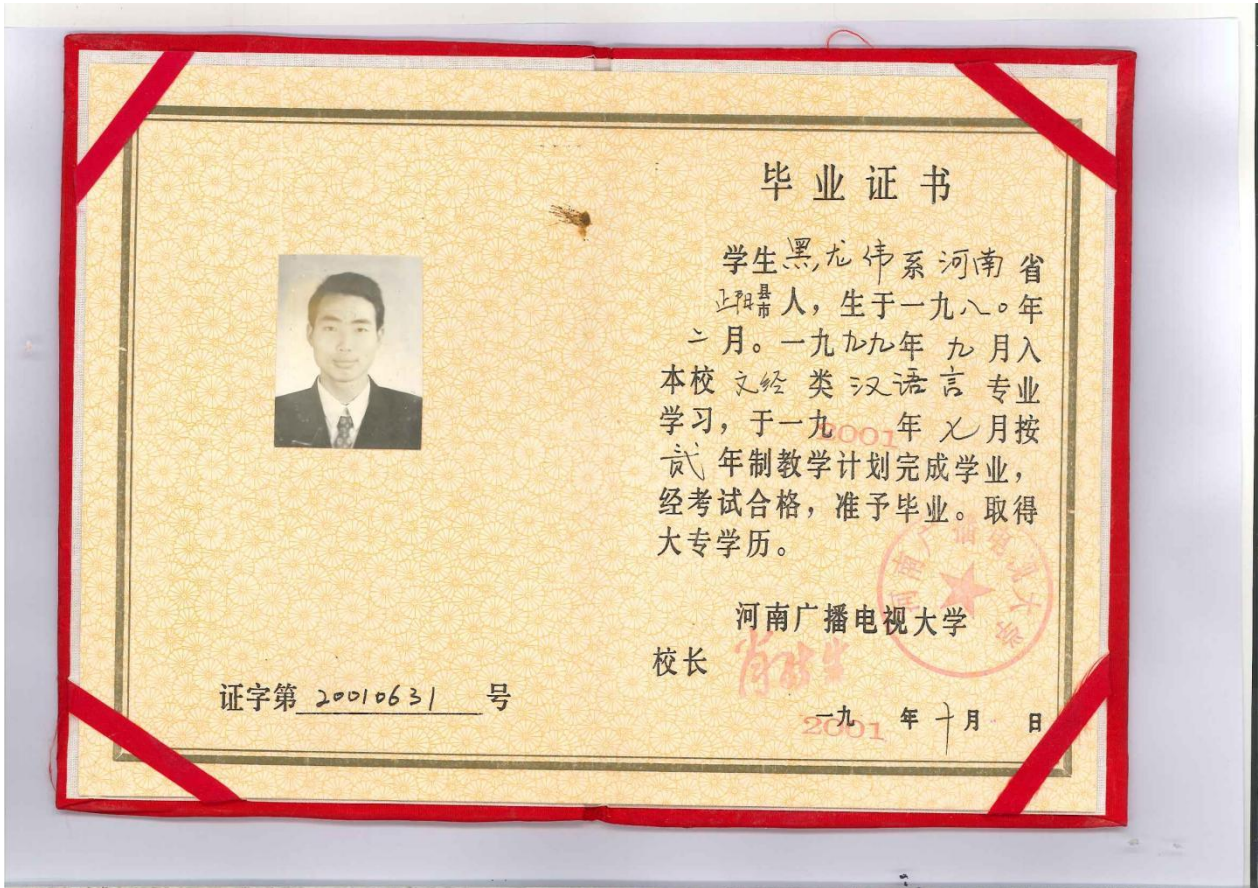 毕业证书
学生黑龙伟系河南省
正阳县市人，生于一九八〇年
二月。一九九九年九月入
本校文经类汉语言专业
学习，于一九2001年七月按
贰年制教学计划完成学业，
经考试合格，准予毕业。取得
大专学历。
河南广播电视大学
河南广播电视大学
校长
证字第20010631号
一九2001年十月日